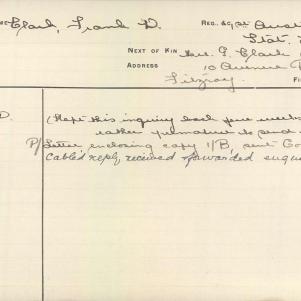 Clark, Frank D. REG. &c., Aust
Stat.
NEXT OF KIN Mr. G. Clark
ADDRESS 10 Avenue
Fitzroy. FI
D. (Kept this inquiry back few weeks
rather premature to send
P/ Letter, enclosing copy 1/B, sent Co
Cabled reply received & forwarded enqui